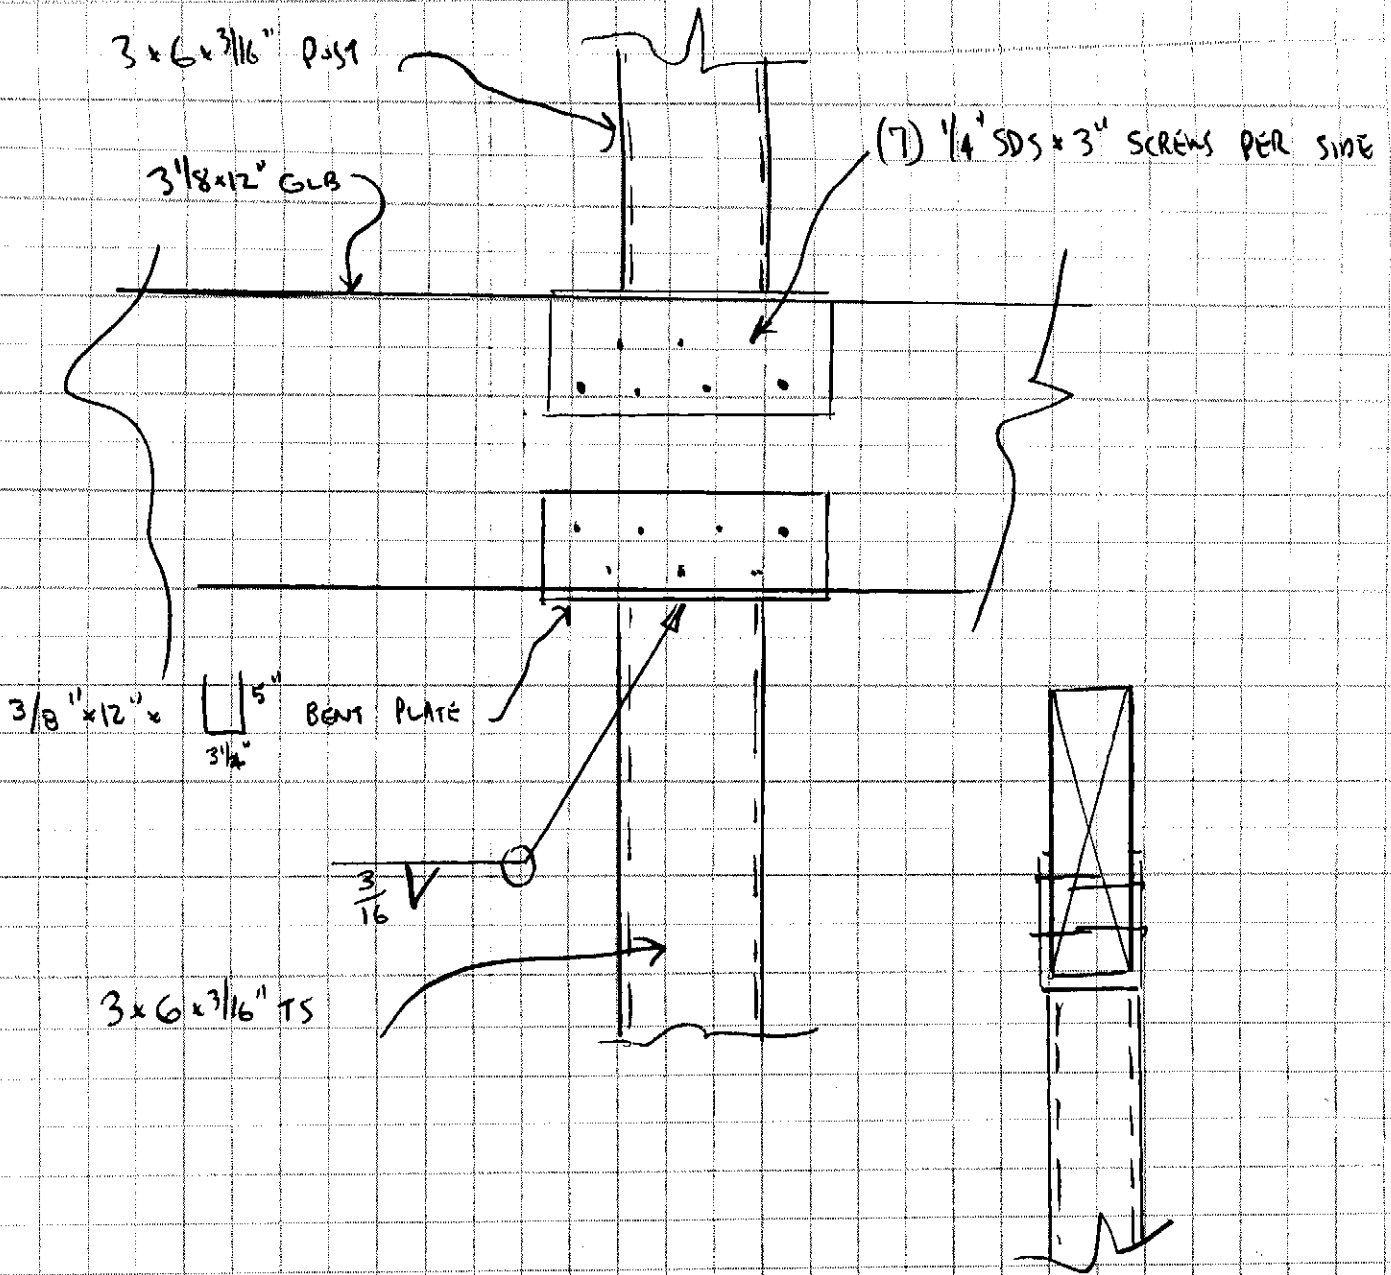 3 x 6 x 3/16" POST
(7) 1/4" SDS x 3" SCREWS PER SIDE
3 1/8 x 12" GLB
3/8" x 12" x 5" BENT PLATE
3 1/4"
3/16
3 x 6 x 3/16" TS